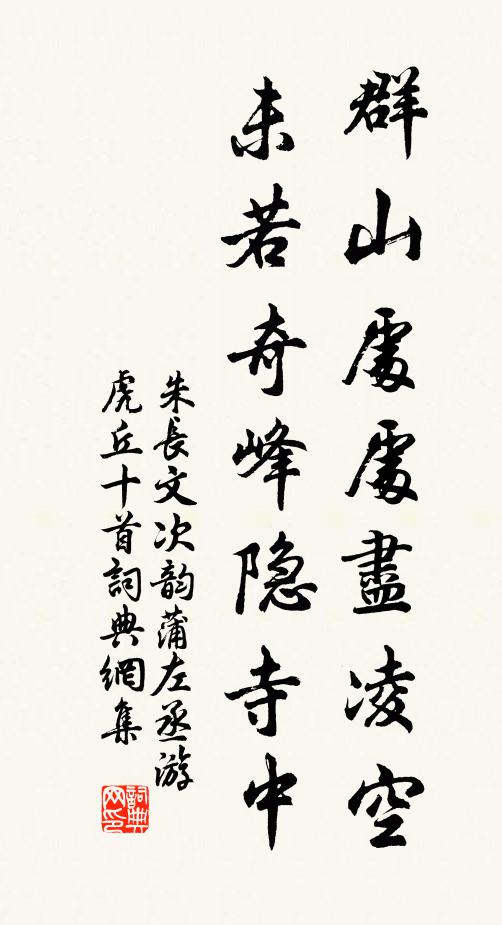 群山處處盡凌空
未若奇峰隐寺中
朱長文次韵蒲左丞游
虎丘十首詞典網集
詞典网印